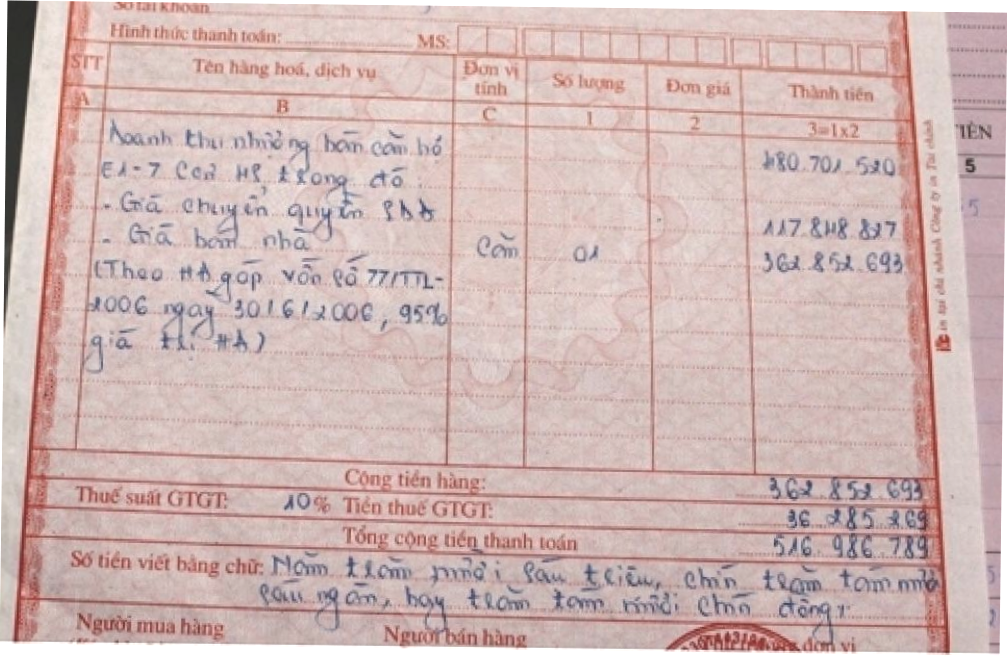 Số tài khoản
Hình thức thanh toán: MS:
STT Tên hàng hoá, dịch vụ Đơn vị tính Số lượng Đơn giá Thành tiền
A B C 1 2 3=1x2
Doanh thu nhường bán căn hộ 480.701.520
E1-7 CC2 MS trong đó:
- Giá chuyển quyền SDĐ 117.848.827
- Giá bán nhà Căn 01 362.852.693
(Theo HĐ góp vốn số 77/TTL-
2006 ngày 30/6/2006, 95%
giá trị HĐ)
Cộng tiền hàng: 362.852.693
Thuế suất GTGT: 10% Tiền thuế GTGT: 36.285.269
Tổng cộng tiền thanh toán 516.986.789
Số tiền viết bằng chữ: Năm trăm mười sáu triệu, chín trăm tám mươi
sáu ngàn, bảy trăm tám mươi chín đồng
Người mua hàng Người bán hàng đơn vị
TIỀN
5